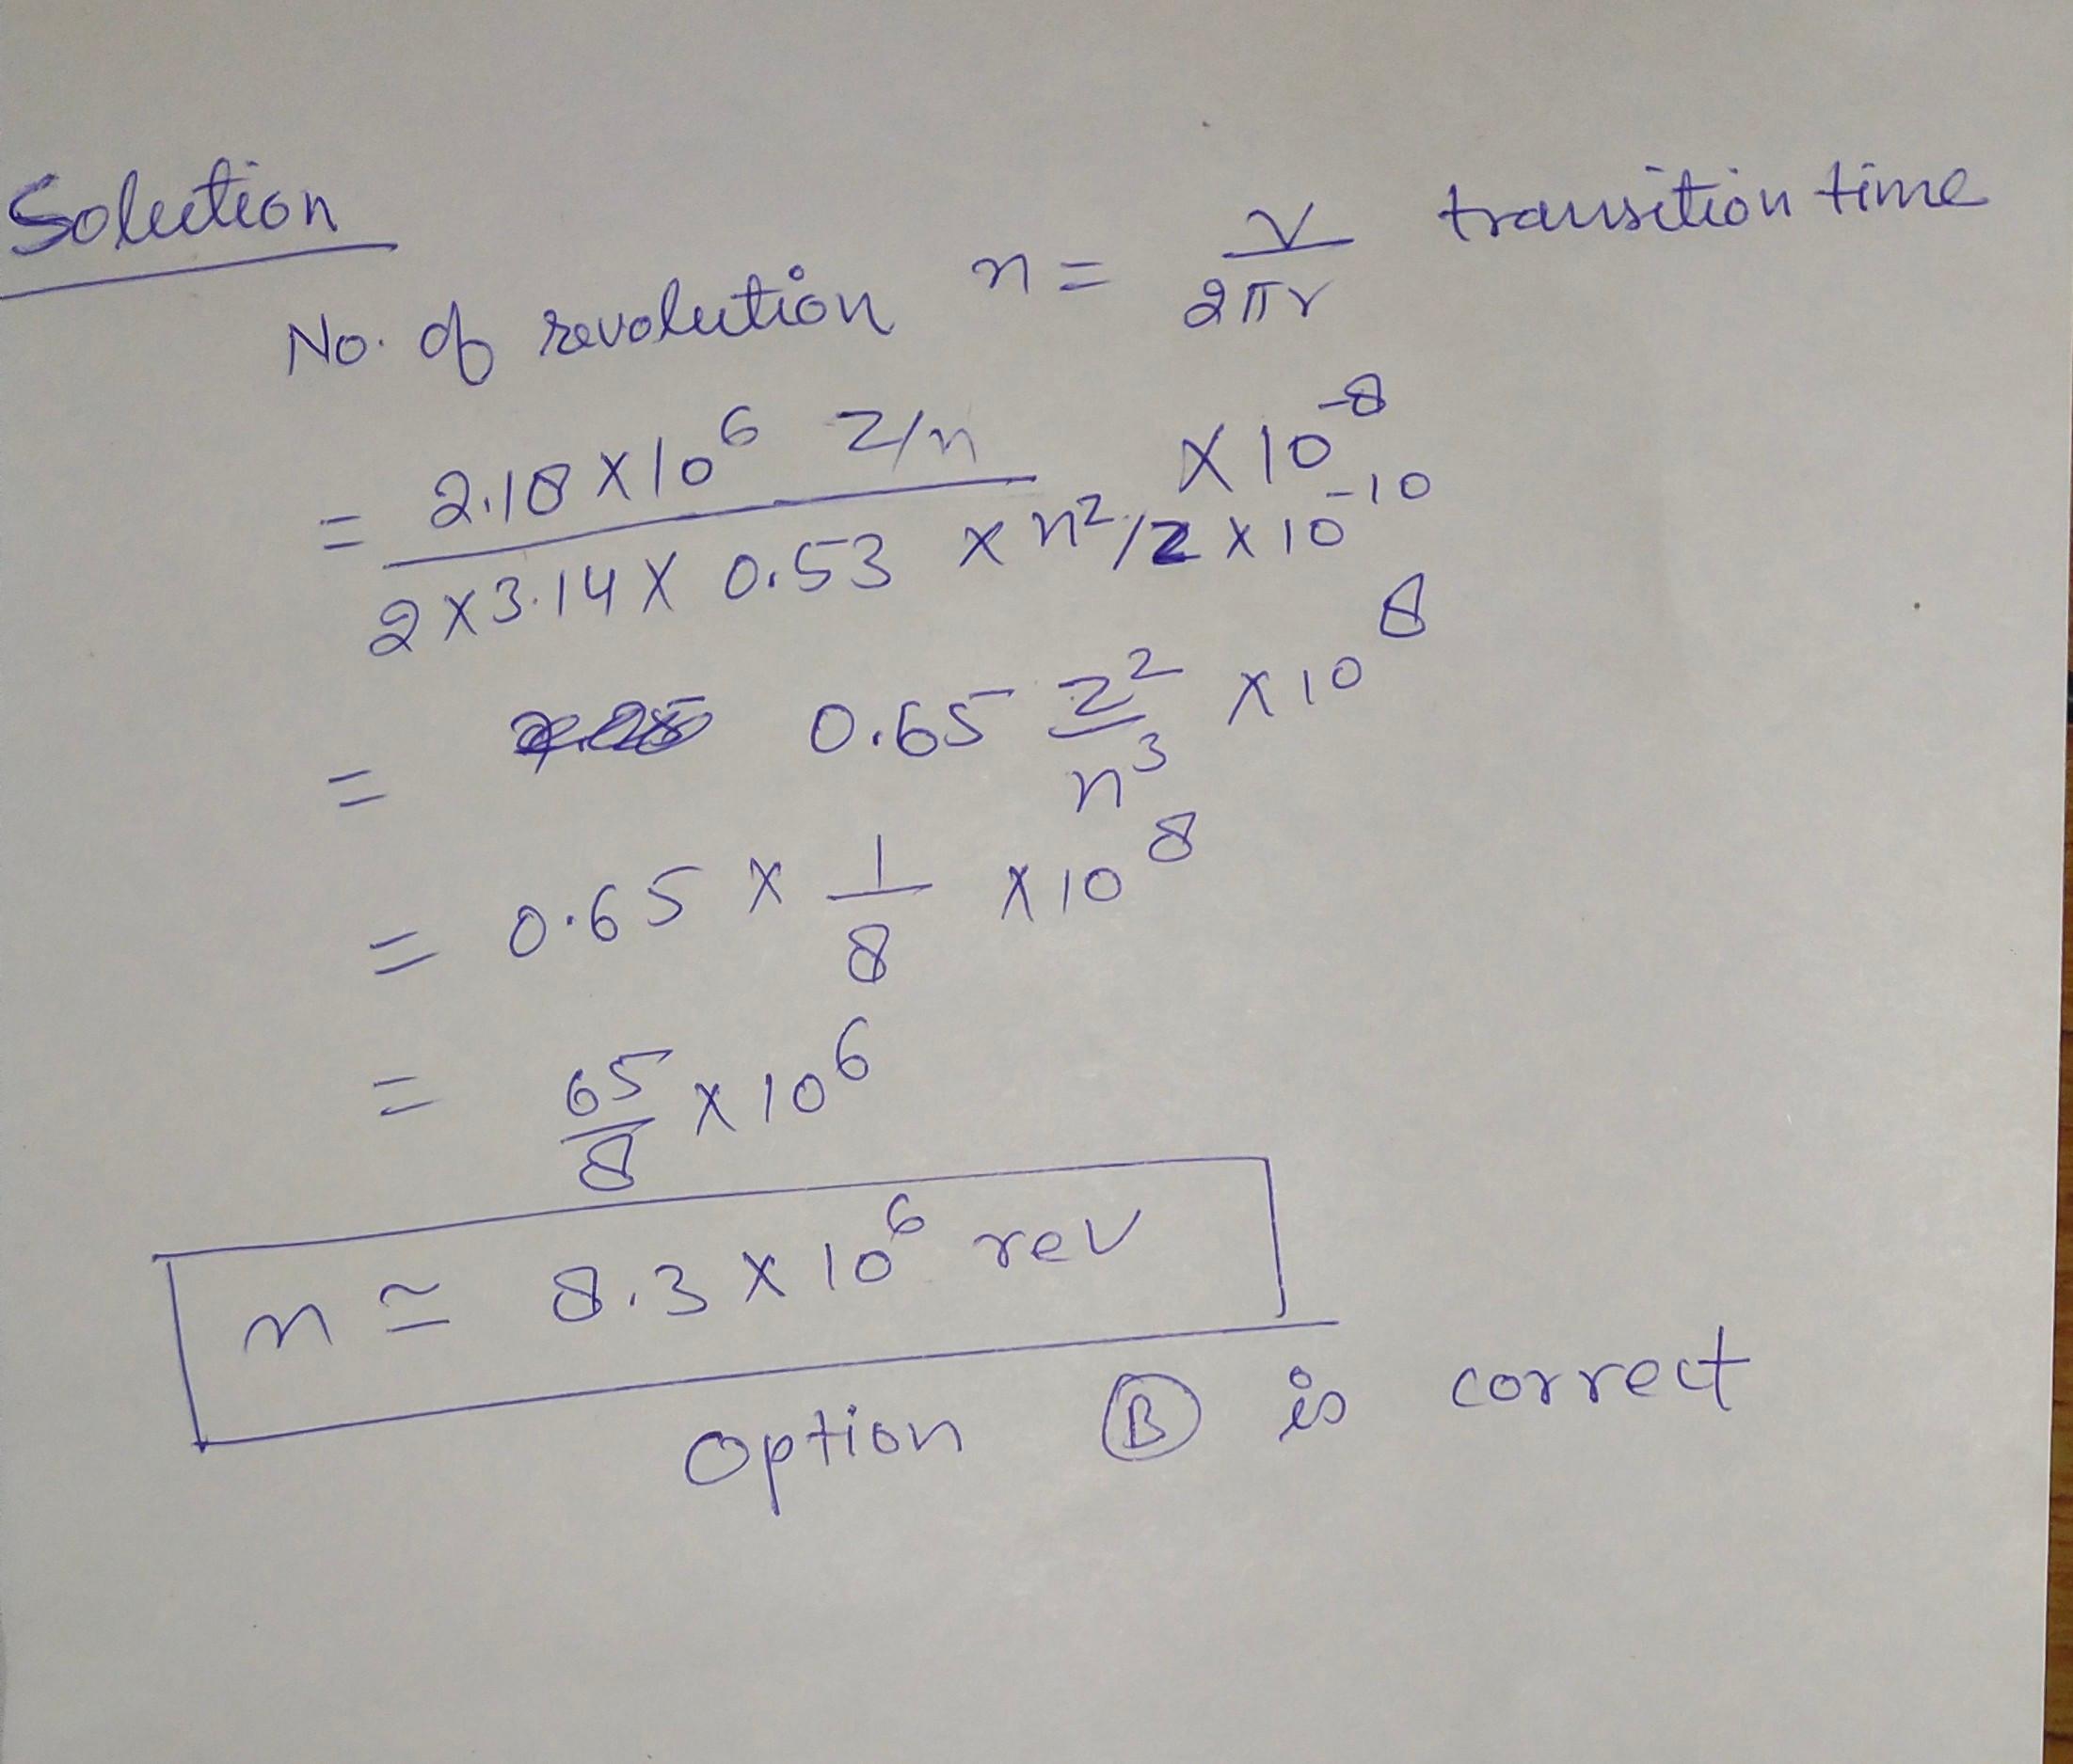 Solution
No. of revolution n = v/2πr transition time
= 2.18 × 10⁶ Z/n / 2 × 3.14 × 0.53 × n²/Z × 10⁻¹⁰ × 10⁻⁸
= 0.65 Z²/n³ × 10⁸
= 0.65 × 1/8 × 10⁸
= 65/8 × 10⁶
n ≃ 8.3 × 10⁶ rev
Option Ⓑ is correct